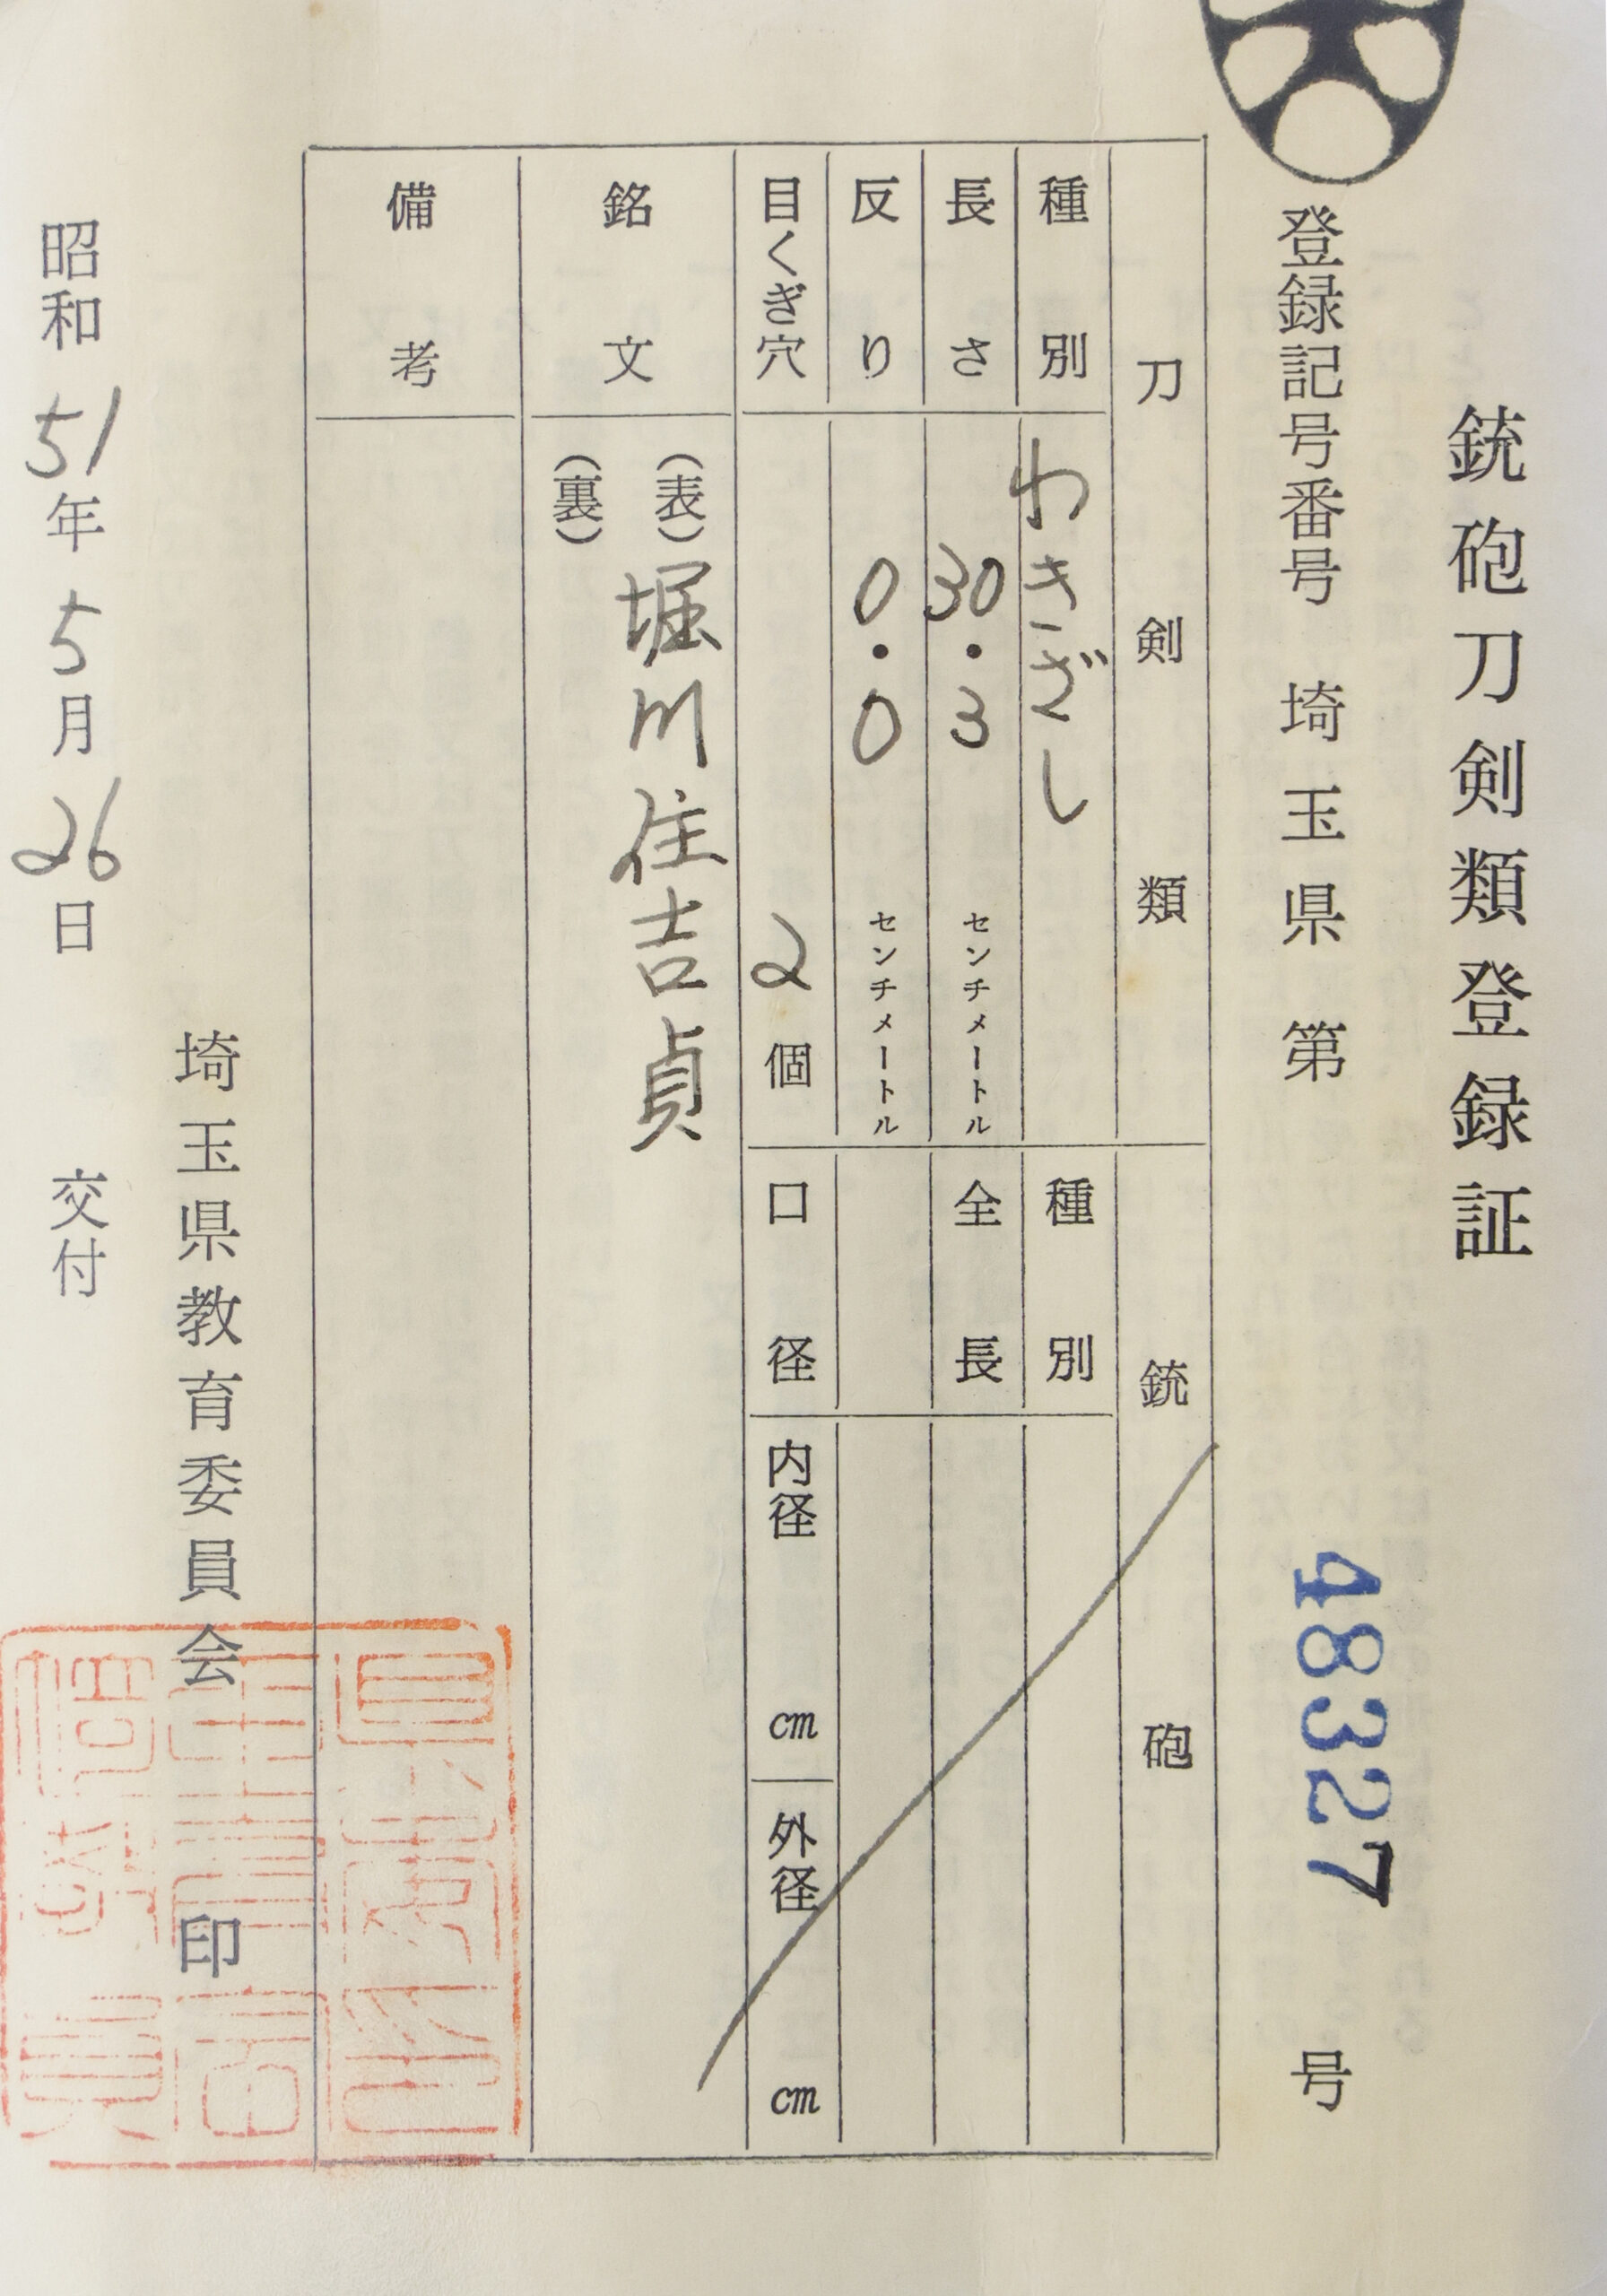 銃砲刀剣類登録証
登録記号番号 埼玉県 第 48327 号
刀剣類
種別 わきざし
長さ 30.3 センチメートル
反り 0.0 センチメートル
目くぎ穴 2 個
銘文 (表) 堀川住吉貞
(裏)
備考
銃砲
種別
全長
口径 内径 cm 外径 cm
埼玉県教育委員会 印
昭和 51 年 5 月 26 日 交付